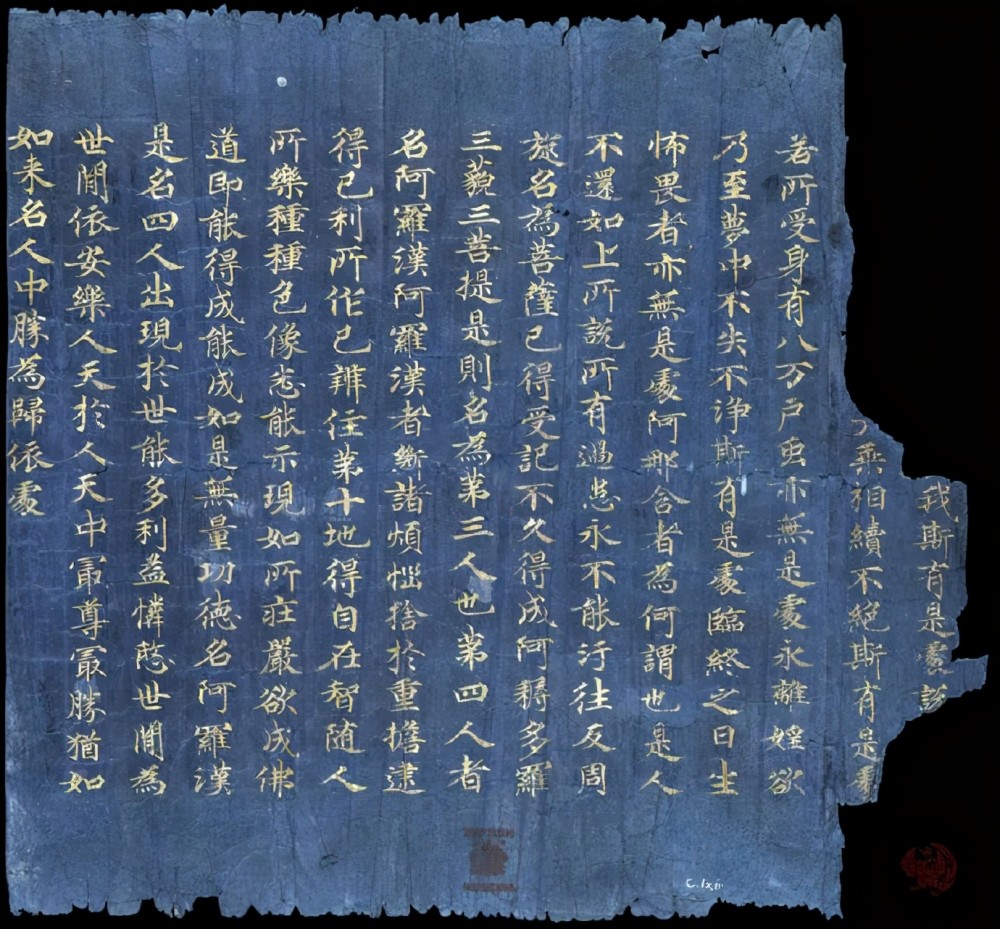 我斯有是處該
乘相續不絕斯有是處
若所受身有八万戶虫亦無是處永離婬欲
乃至夢中不失不淨斯有是處臨終之日生
怖畏者亦無是處阿那含者為何謂也是人
不還如上所說所有過患永不能汙往反周
旋名為菩薩已得受記不久得成阿耨多羅
三藐三菩提是則名為第三人也第四人者
名阿羅漢阿羅漢者斷諸煩惱捨於重擔逮
得己利所作已辦住第十地得自在智随人
所樂種種色像悉能示現如所莊嚴欲成佛
道即能得成能成如是無量功德名阿羅漢
是名四人出現於世能多利益憐愍世間為
世間依安樂人天於人天中冣尊冣勝猶如
如来名人中勝為歸依處
C. lxiii